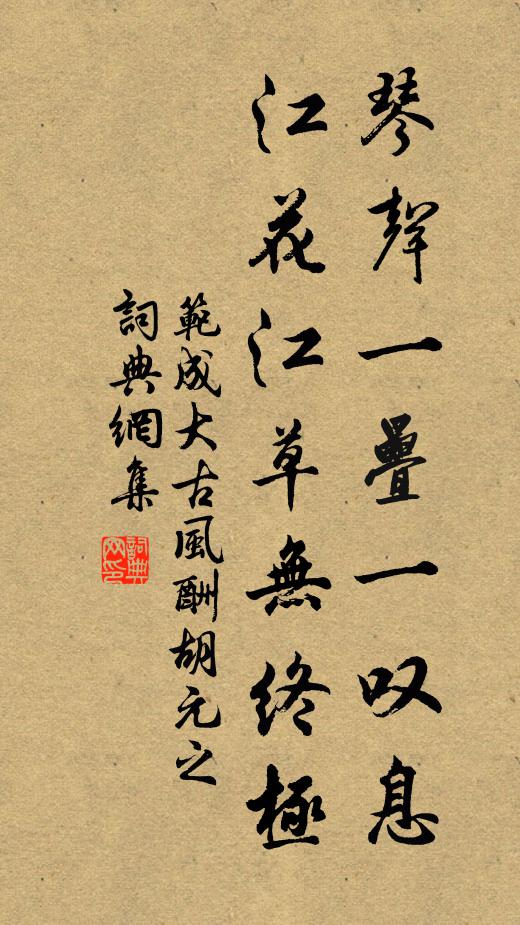 琴聲一疊一叹息
江花江草無終極
範成大古風酬胡元之
詞典網集
詞典网印